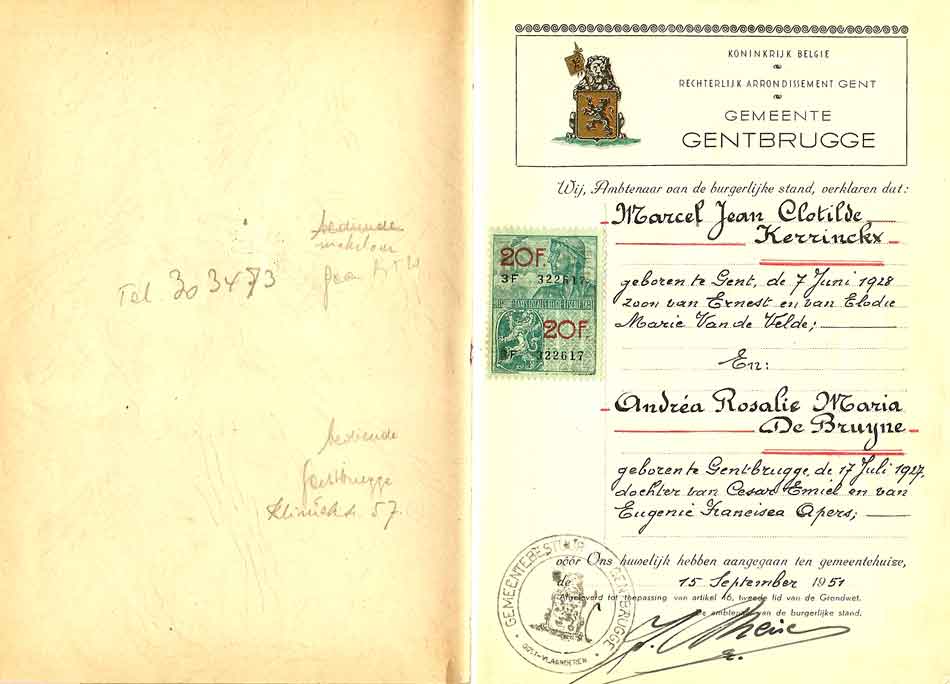 bediende
Tel 303473
bediende
Gentbrugge
57.
KONINKRIJK BELGIE
RECHTERLIJK ARRONDISSEMENT GENT
GEMEENTE
GENTBRUGGE
Wij, Ambtenaar van de burgerlijke stand, verklaren dat:
Marcel Jean Clotilde
Kerrinckx
geboren te Gent, de 7 Juni 1928
zoon van Ernest en van Elodie
Marie Van de Velde;
En:
Andréa Rosalie Maria
De Bruyne
geboren te Gentbrugge, de 17 Juli 1927,
dochter van Cesar Emiel en van
Eugenie Francisca Apers;
vóór Ons huwelijk hebben aangegaan ten gemeentehuize,
de 15 September 1951
Afgeleverd tot toepassing van artikel 16, tweede lid van de Grondwet.
De ambtenaar van de burgerlijke stand.
20F
3F 322617
20F
3F 322617
GEMEENTEBESTUUR GENTBRUGGE
OOST-VLAANDEREN